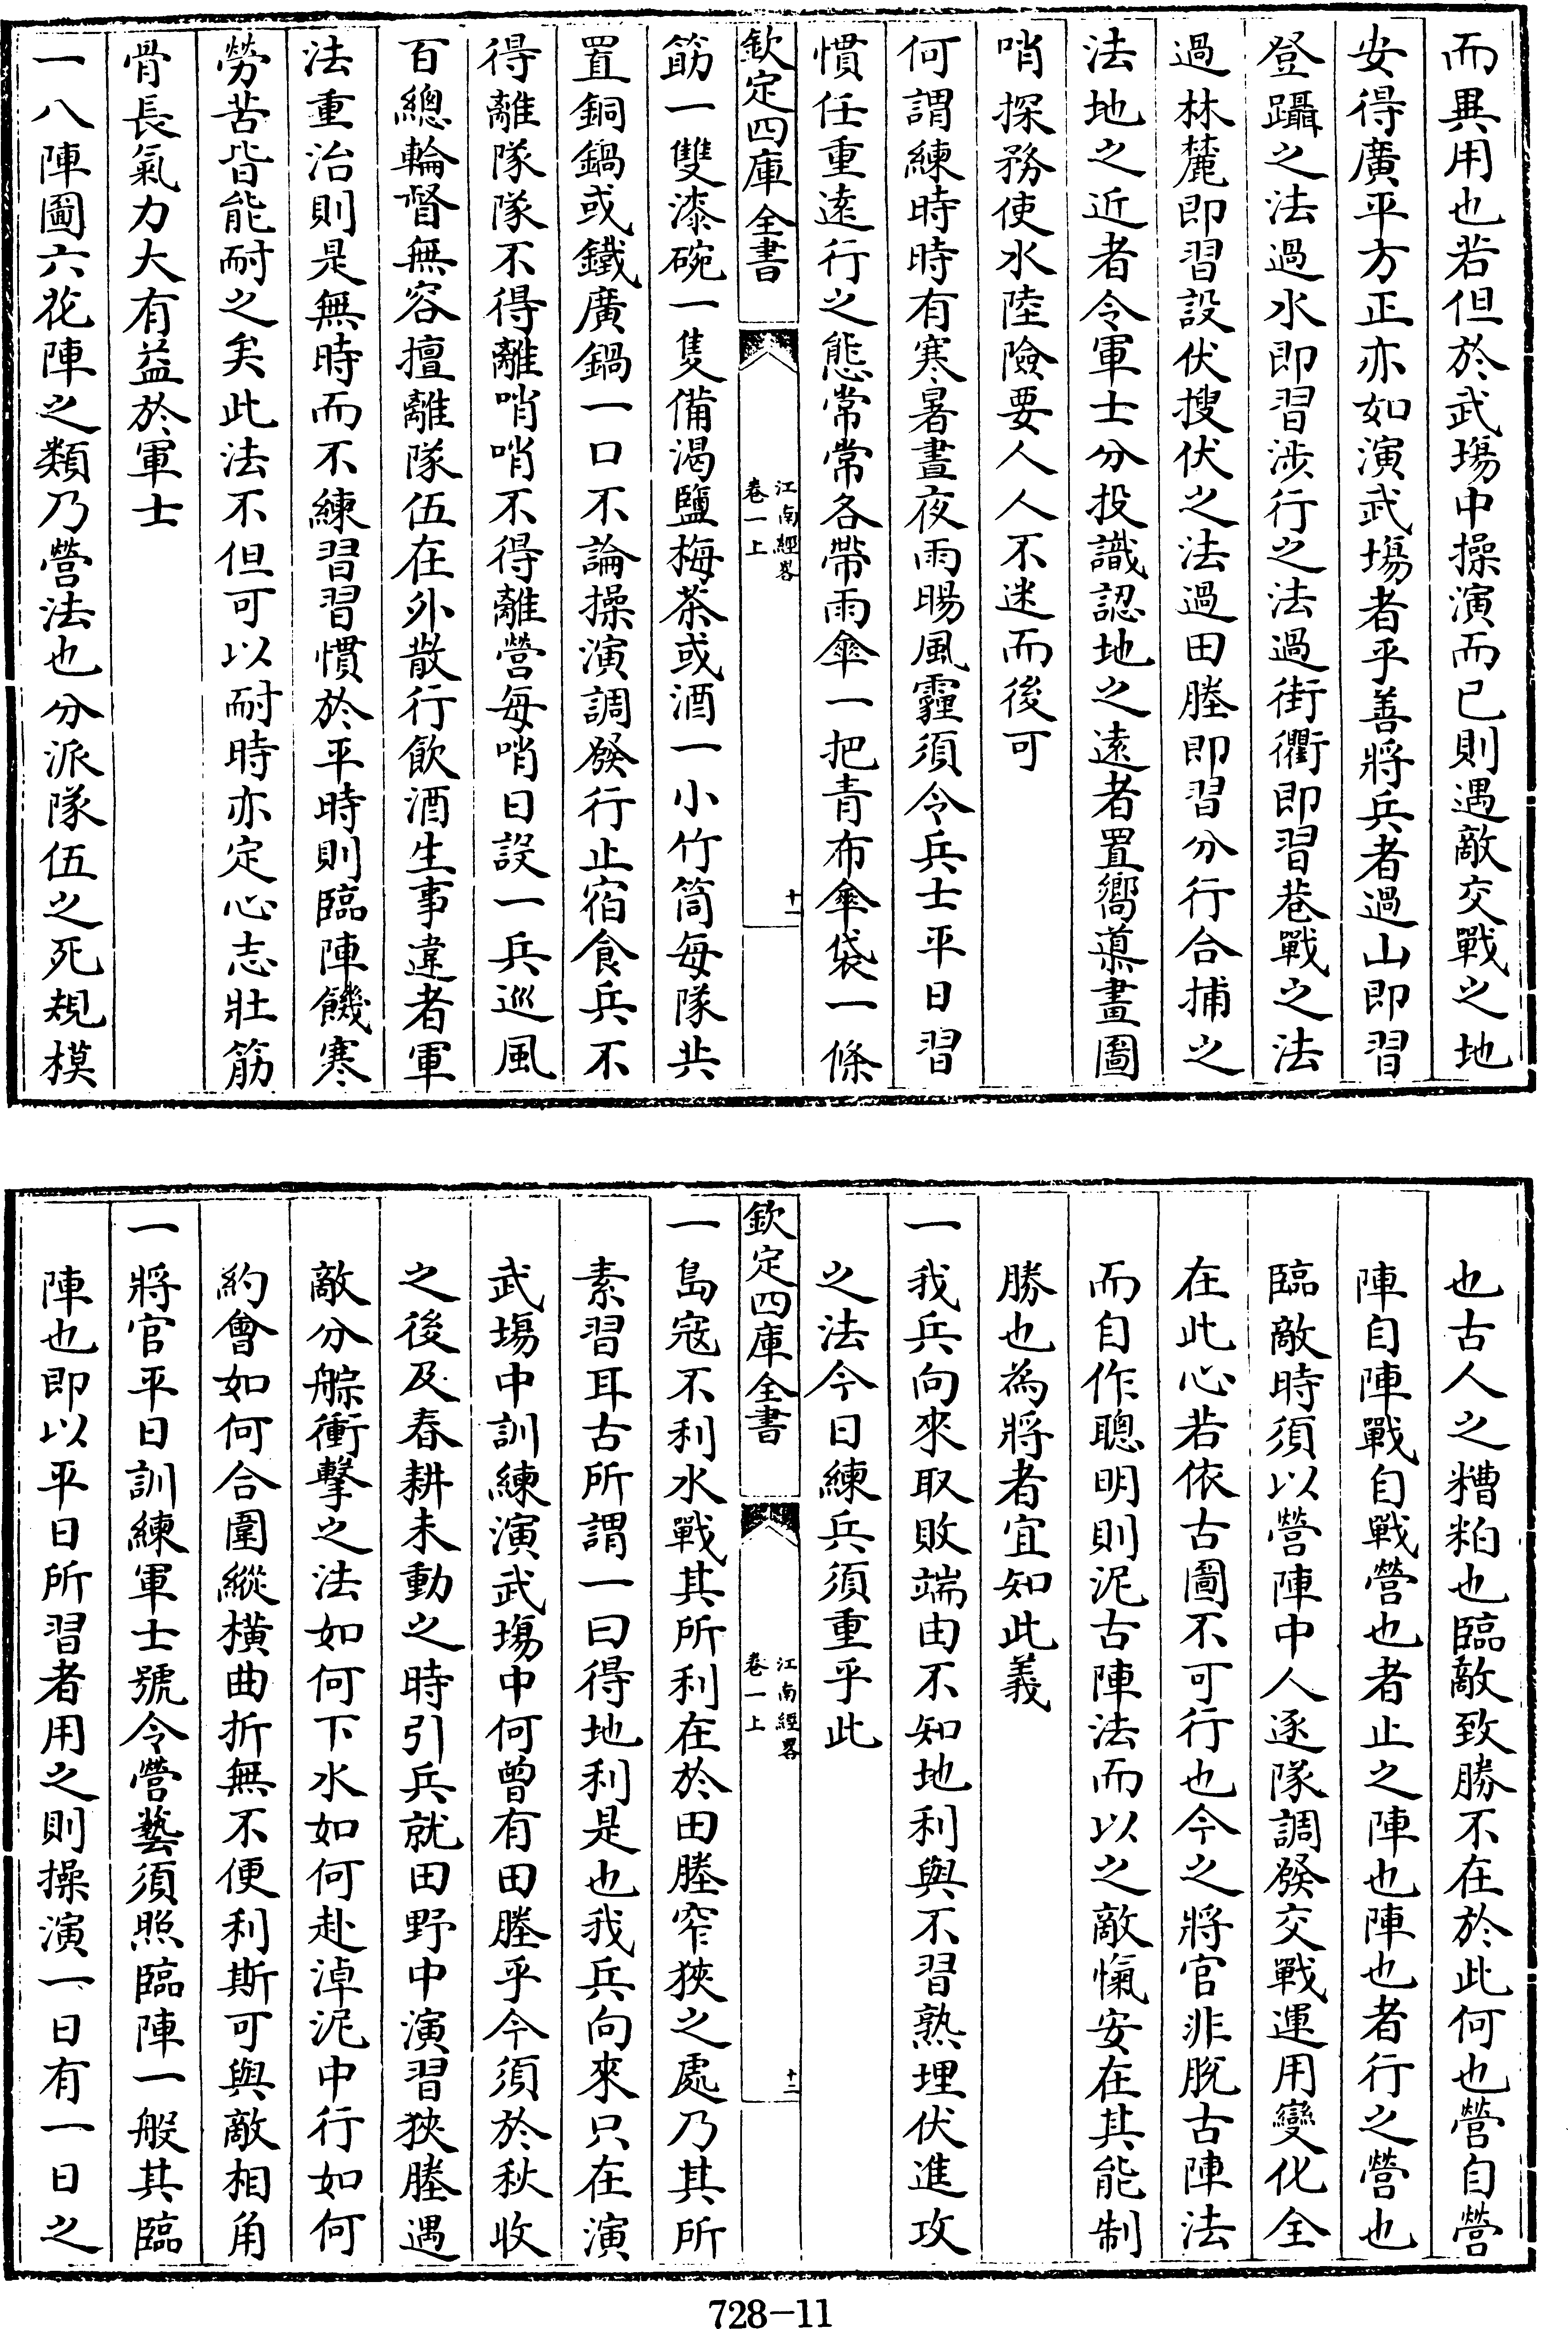 而異用也若但於武場中操演而已則遇敵交戰之地
安得廣平方正亦如演武場者乎善將兵者過山即習
登躡之法過水即習涉行之法過街衢即習巷戰之法
過林麓即習設伏搜伏之法過田塍即習分行合捕之
法地之近者令軍士分投識認地之遠者置嚮導畫圖
哨探務使水陸險要人人不迷而後可
何謂練時時有寒暑晝夜雨暘風霾須令兵士平日習
慣任重遠行之態常常各帶雨傘一把青布傘袋一條
欽定四庫全書
江南經畧
卷一上
十一
筯一雙漆碗一隻備渴鹽梅茶或酒一小竹筒每隊共
置銅鍋或鐵廣鍋一口不論操演調發行止宿食兵不
得離隊隊不得離哨哨不得離營每哨日設一兵巡風
百總輪督無容擅離隊伍在外散行飲酒生事違者軍
法重治則是無時而不練習習慣於平時則臨陣饑寒
勞苦皆能耐之矣此法不但可以耐時亦定心志壯筋
骨長氣力大有益於軍士
一八陣圖六花陣之類乃營法也分派隊伍之死規模
也古人之糟粕也臨敵致勝不在於此何也營自營
陣自陣戰自戰營也者止之陣也陣也者行之營也
臨敵時須以營陣中人逐隊調發交戰運用變化全
在此心若依古圖不可行也今之將官非脫古陣法
而自作聰明則泥古陣法而以之敵愾安在其能制
勝也為將者宜知此義
一我兵向來取敗端由不知地利與不習熟埋伏進攻
之法今日練兵須重乎此
欽定四庫全書
江南經畧
卷一上
十二
一島寇不利水戰其所利在於田塍窄狹之處乃其所
素習耳古所謂一曰得地利是也我兵向來只在演
武場中訓練演武場中何曾有田塍乎今須於秋收
之後及春耕未動之時引兵就田野中演習狹塍遇
敵分䑸衝擊之法如何下水如何赴淖泥中行如何
約會如何合圍縱橫曲折無不便利斯可與敵相角
一將官平日訓練軍士號令營藝須照臨陣一般其臨
陣也即以平日所習者用之則操演一日有一日之
728-11